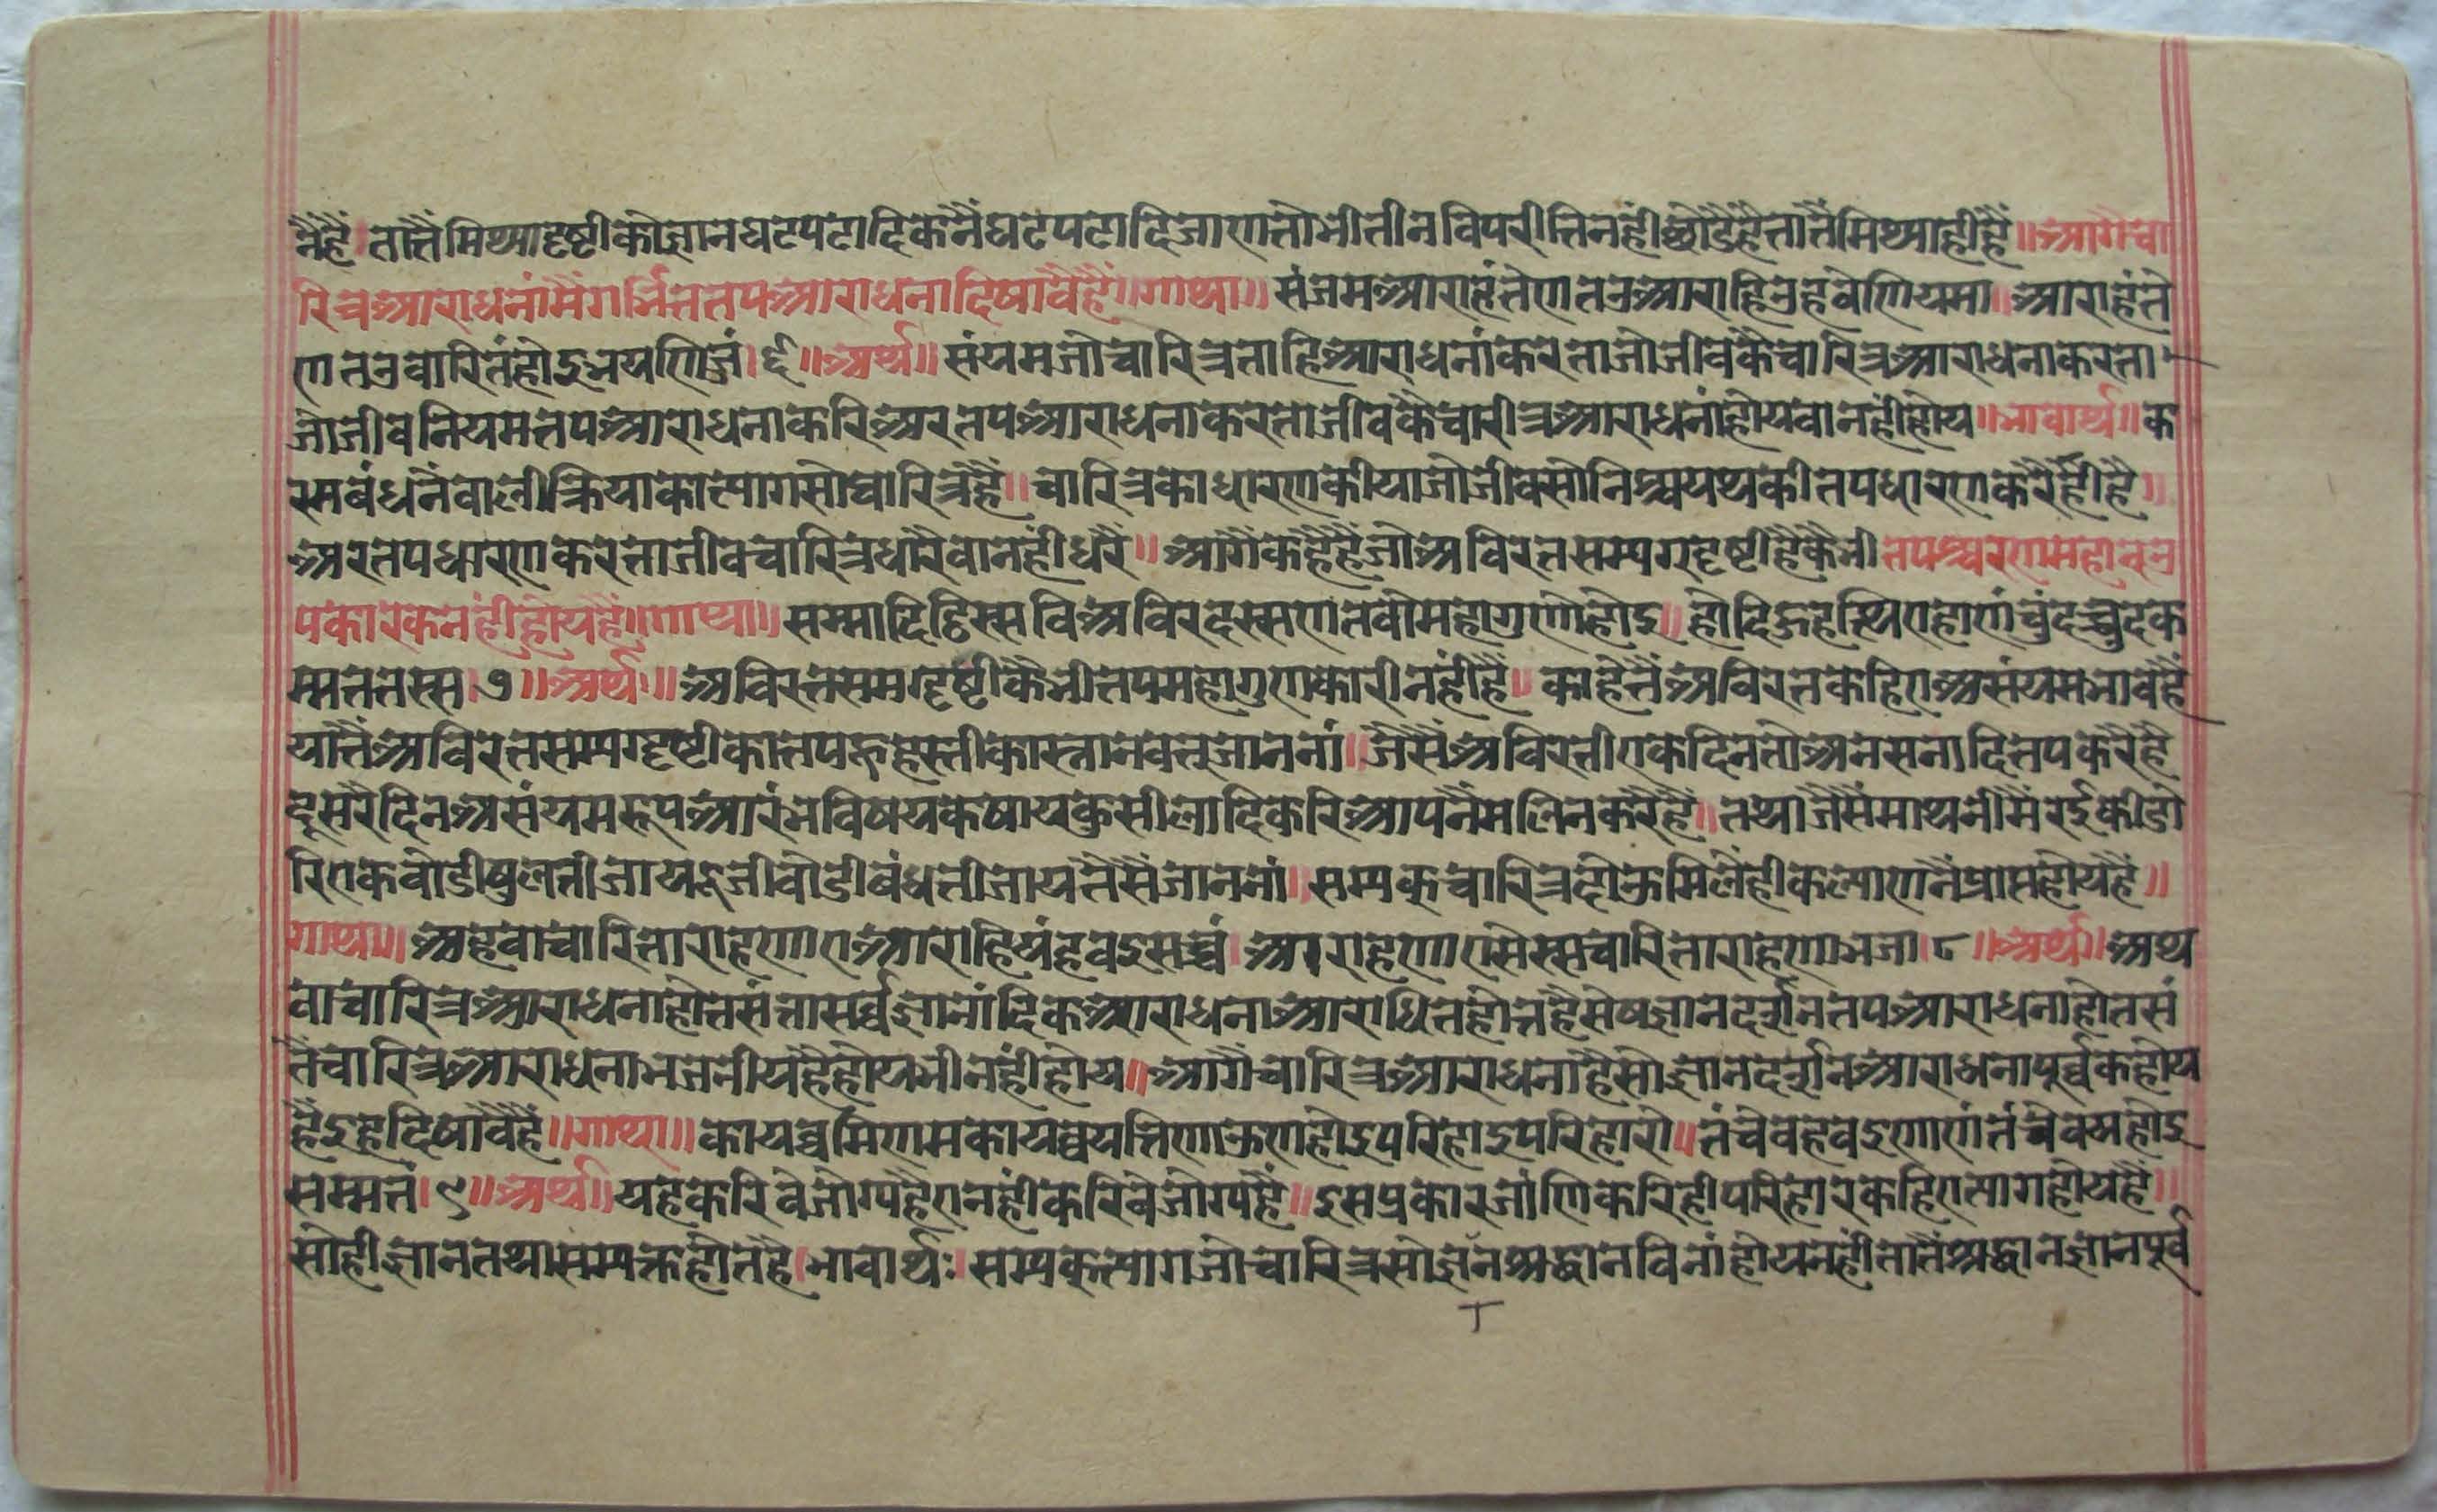 नैंहैं।तातैंमिथ्यादृष्टीकोज्ञानघटपटादिकनैंघटपटादिजाणतोभीतीनविपरीतिनहींछोडैहैतातैंमिथ्याहीहैं॥आगैचा
रित्रआराधनांमैंगर्भिततपआराधनादिषावैहैं॥गाथा॥संजमआराहंतेणतउआराहिउहवेणियमा॥आराहंते
णतउचारितंहोइभयणिज्जं।६॥अर्थ॥संयमजोचारित्रताहिआराधनांकरताजोजीवकैचारित्रआराधनाकरता
जोजीवनियमतपआराधनाकरिअरतपआराधनाकरताजीवकैचारीत्रआराधनांहोयवानहींहोय॥भावार्थ॥क
रमबंधनैंवालीक्रियाकोत्यागसोचारित्रहैं॥चारित्रकाधारणकीयाजोजीवसोनिश्चयथकीतपधारणकरैहीहै॥
अरतपधारणकरताजीवचारित्रधारैवानहींधरै॥आगैंकहैहैंजोअविरतसम्यग्दृष्टीहैकैभीतपश्चरणमहानउ
पकारकनहींहोयहैं॥गाथा॥सम्मादिट्ठिस्सविअविरदस्सणतवोमहागुणोहोइ॥होदिहुहत्थिण्हाणंचुंदच्चुदक
म्मततस्स।७॥अर्थ॥अविरतसमग्दृष्टीकैभीतपमहागुणकारीनहींहैं॥काहेतैंअविरतकेहिएअसंयमभावहैं
यातैंअविरतसम्यग्दृष्टीकातपहैहस्तीकास्नानवतूजाननां॥जैसैंअविरतीएकदिनतोअनसनादितपकरैहै
दूसरैदिनअसंयमरूपआरंभविषयकषायकुसीलादिकरिआपनैंमलिनकरैहैं॥तथाजैसैंमाथनीमैंरईकीडो
रिएकवोडीषुलतीजायदूजीवोडीबंधतीजायतैसैंजाननां॥सम्यक्चारित्रहीक्रमिलैहीकल्याणनैंप्राप्तहोयहैं॥
गाथा॥अहवाचारिताराहणाएआराहियंहवइसव्वं।आराहणाएसेस्सचारिताराहणाभजा।८॥अर्थ॥अथ
वाचारित्रआराधनाहोतसंतासर्व्वज्ञानांदिकआराधनाआराधितहोतहैसेषज्ञानदर्शनतपआराधनाहोतसं
तैचारित्रआराधनाभजनीयहैहोयभीनहींहोय॥आगैंचारित्रआराधनाहैसोज्ञानदर्शनआराधनापूर्व्वकहोय
हैंइहदिषावैहैं॥गाथा॥कायव्वमिणमकायव्वयत्तिणाऊणहोइपरिहोइपरिहारो॥तंचेवहवइणाणंतंचेवयहोइ
सम्मतं।९॥अर्थ॥यहकरिवेजोग्यहैएनहींकरिवेजोग्यहैं॥इसप्रकारजांणिकरिहीपरिहारकहिएत्यागहोयहै॥
सोहीज्ञानतथासम्यक्तहोतहै।भावार्थः।सम्यक्त्यागजोचारित्रसोज्ञनश्रद्धानविनांहोयनहींतातैंश्रद्धानज्ञानपूर्व